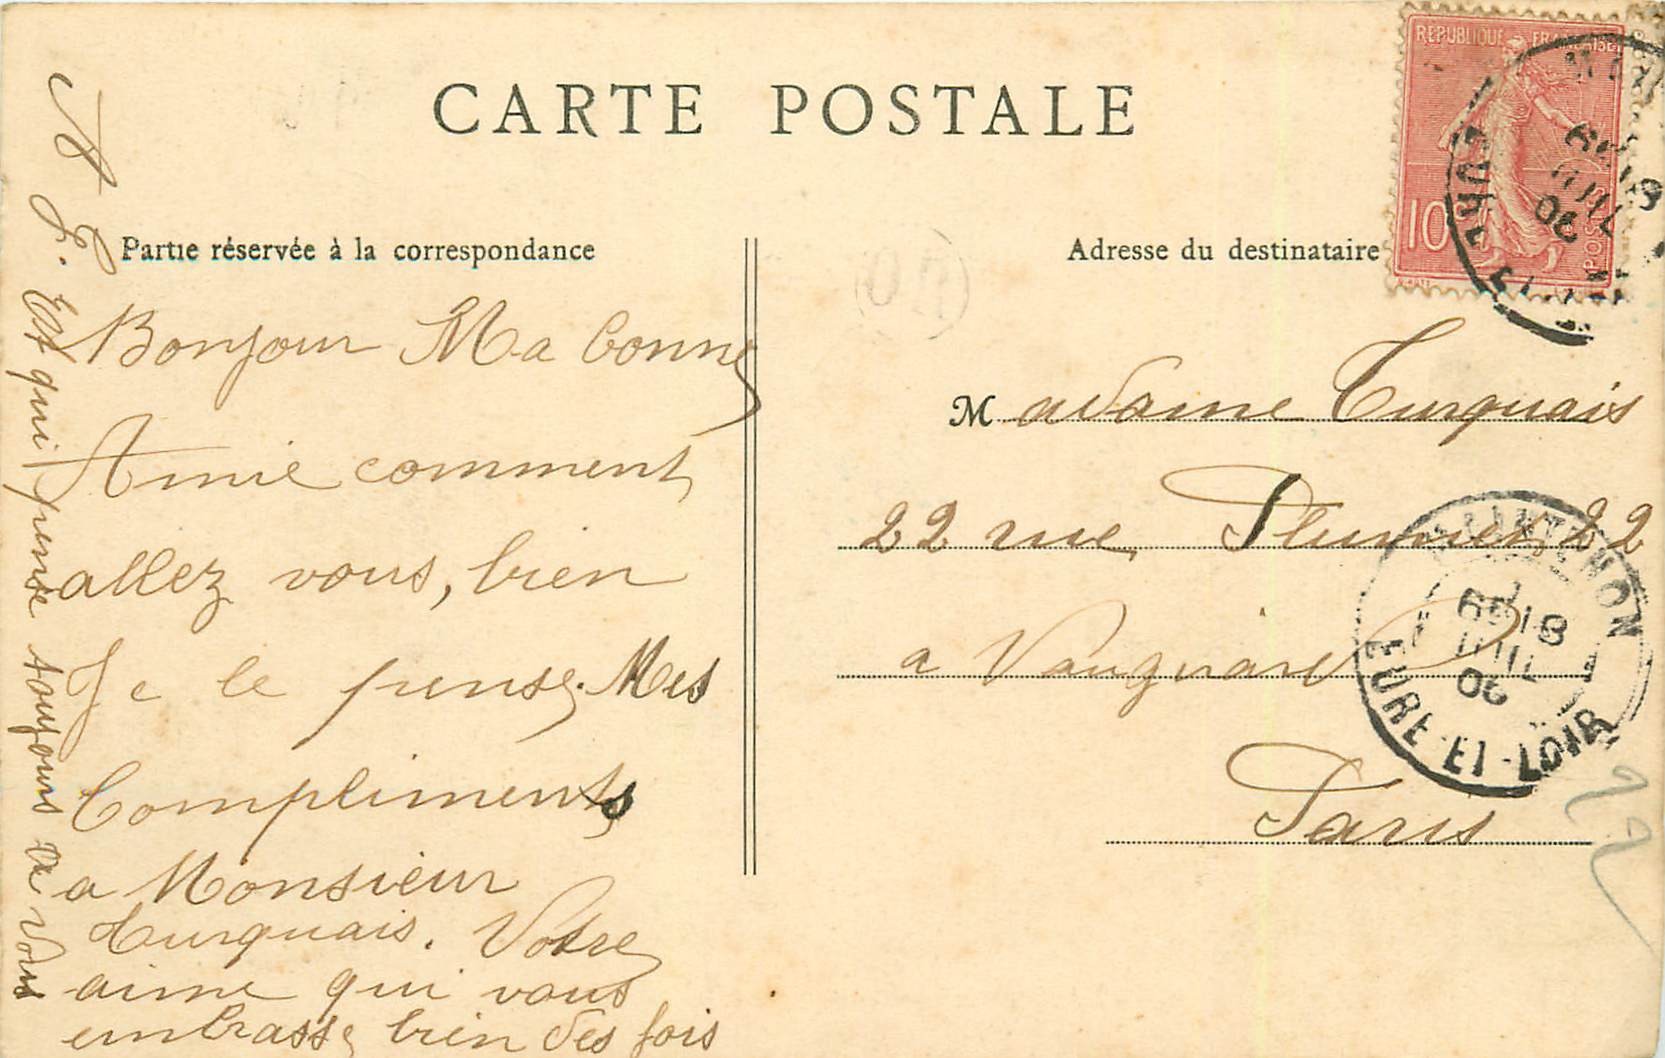 CARTE POSTALE
Partie réservée à la correspondance
Bonjour Ma bonne
Amie comment
allez vous, bien
Je le pense. Mes
Compliments
a Monsieur
Turquais. Votre
aime qui vous
embrasse bien des fois
Et qui pense toujours a Vous
Adresse du destinataire
Madame Turquais
22 rue Plumet 22
a Vaugirard
Paris
REPUBLIQUE FRANÇAISE
10c
POSTES
EURE-ET-LOIR
18
JUIL
06
EURE-ET-LOIR
18
JUIL
06